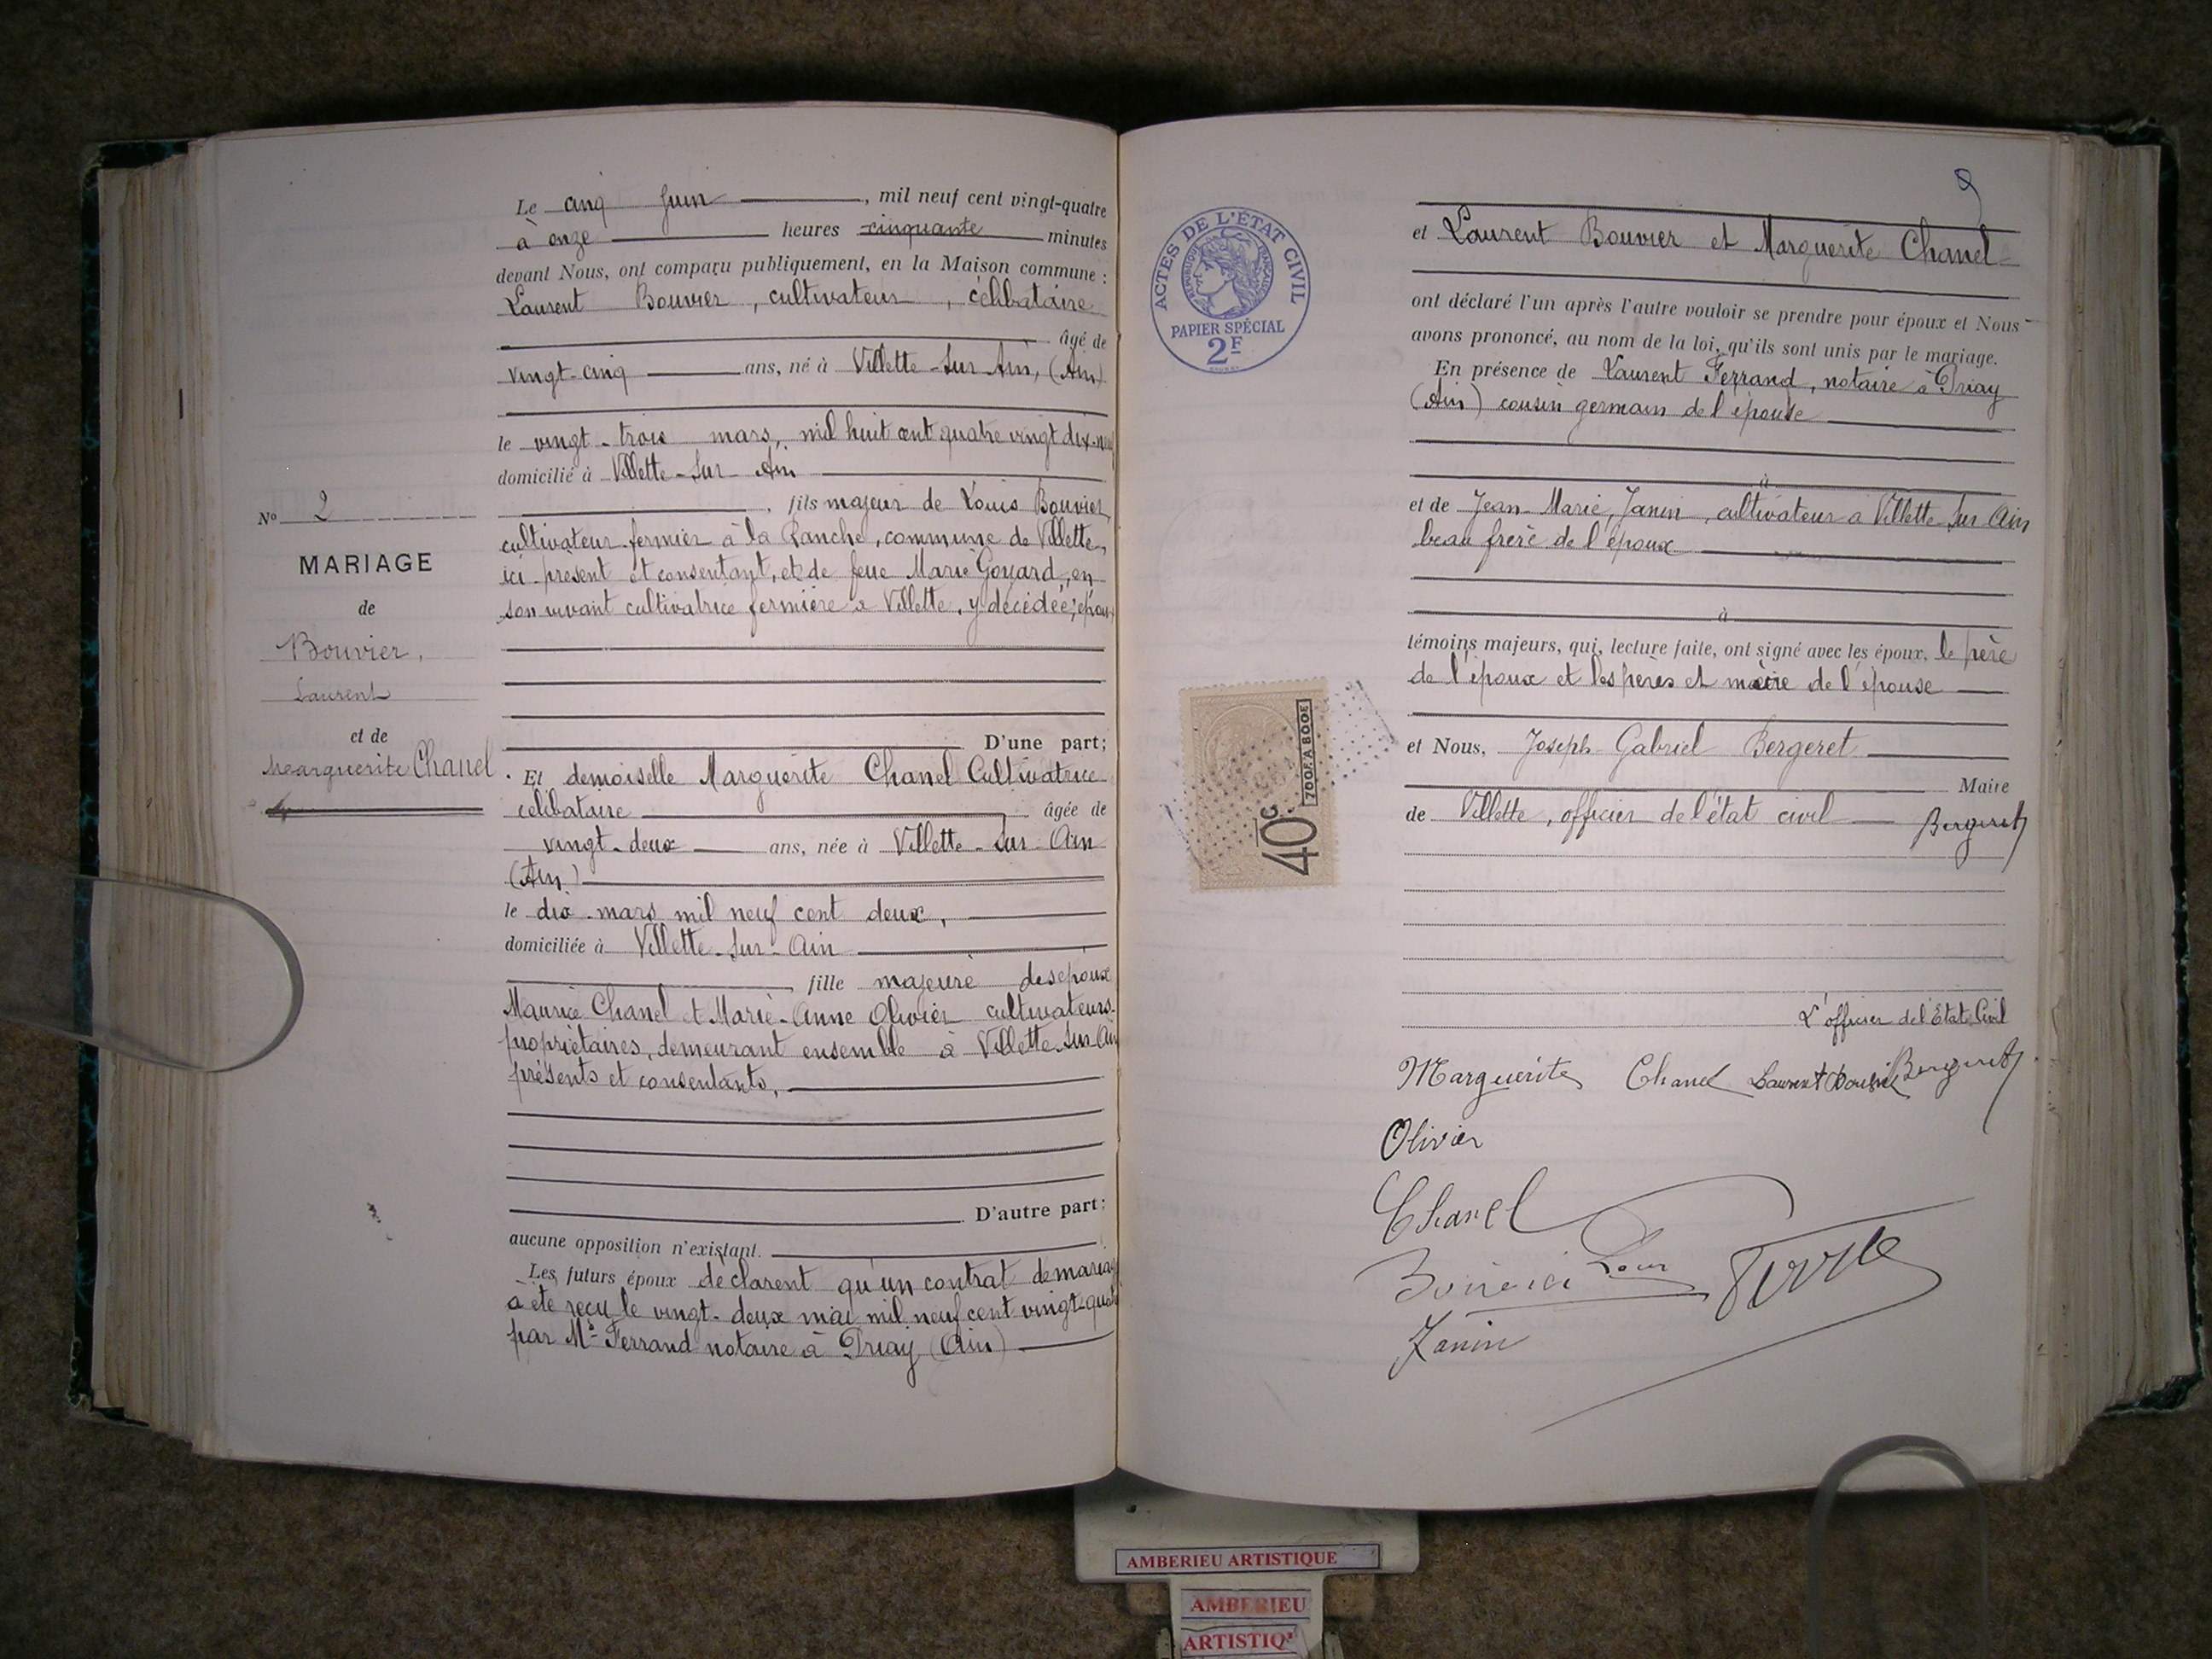 Le cinq Juin, mil neuf cent vingt-quatre
à onze heures cinquante minutes
devant Nous, ont comparu publiquement, en la Maison commune :
Laurent Bouvier, cultivateur, célibataire
âgé de
vingt-cinq ans, né à Villette-Sur-Ain, (Ain)
le vingt-trois mars, mil huit cent quatre vingt dix-neuf
domicilié à Villette-Sur-Ain
, fils majeur de Louis Bouvier,
cultivateur fermier à la Ranche, commune de Villette,
ici présent et consentant, et de feue Marie Goyard, en
son vivant cultivatrice fermière à Villette, y décédée, époux
N° 2
MARIAGE
de
Bouvier,
Laurent
et de
Marguerite Chanel
D'une part;
Et demoiselle Marguerite Chanel Cultivatrice
célibataire âgée de
vingt-deux ans, née à Villette-Sur-Ain
(Ain)
le dix mars mil neuf cent deux,
domiciliée à Villette-Sur-Ain
, fille majeure des époux
Maurice Chanel et Marie-Anne Olivier cultivateurs-
propriétaires, demeurant ensemble à Villette Sur-Ain
présents et consentants,
D'autre part;
aucune opposition n'existant.
Les futurs époux déclarent qu'un contrat de mariage
a été reçu le vingt-deux mai mil neuf cent vingt-quatre
par Me Ferrand notaire à Priay (Ain)
9
ACTES DE L'ÉTAT CIVIL
RÉPUBLIQUE FRANÇAISE
PAPIER SPÉCIAL
2F
et Laurent Bouvier et Marguerite Chanel
ont déclaré l'un après l'autre vouloir se prendre pour époux et Nous
avons prononcé, au nom de la loi, qu'ils sont unis par le mariage.
En présence de Laurent Ferrand, notaire à Priay
(Ain) cousin germain de l'épouse
à
et de Jean-Marie, Janin, cultivateur à Villette Sur Ain
beau frère de l'époux
à
témoins majeurs, qui, lecture faite, ont signé avec les époux, le père
de l'époux et les pères et mère de l'épouse
40c
et Nous, Joseph-Gabriel Bergeret
Maire
de Villette, officier de l'état civil Bergeret
L'officier de l'Etat Civil
Marguerite Chanel Laurent Bouvier Bergeret
Olivier
Chanel
Janin
AMBERIEU ARTISTIQUE
AMBERIEU
ARTISTIQ